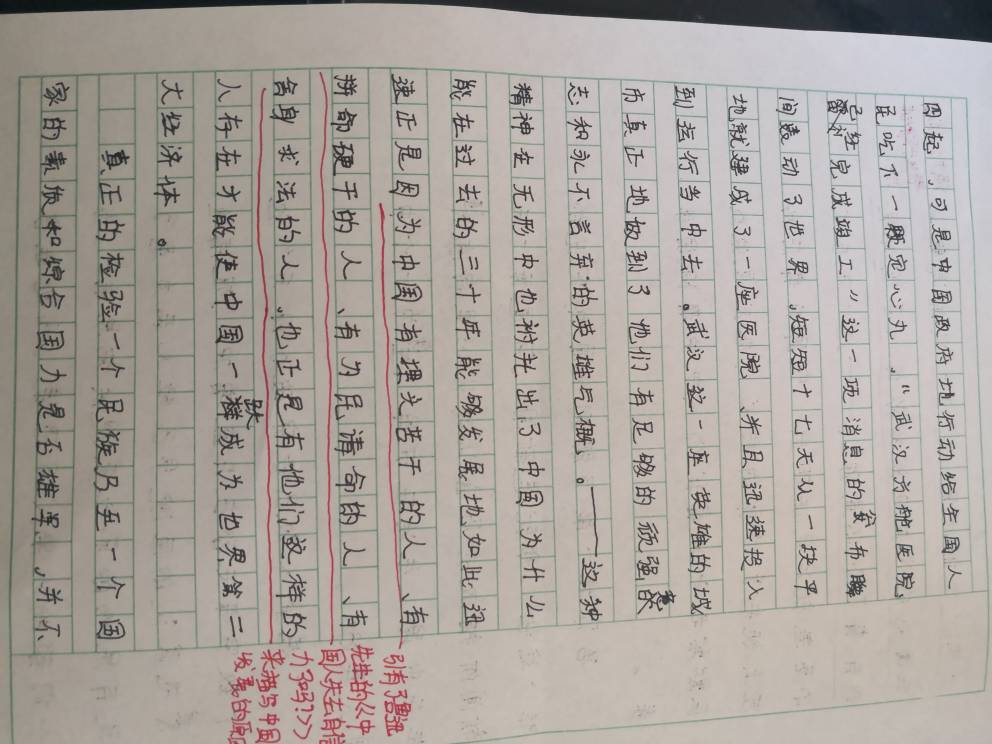 四起，可是中国政府地行动给全国人
民吃下一颗定心丸，“武汉方舱医院，
已经完成竣工”这一项消息的发布瞬
间轰动了世界，短短十七天从一块平
地就建成了一座医院、并且迅速投入
到运行当中去。武汉这一座英雄的城
市真正地做到了他们有足够的顽强意
志和永不言弃的英雄气概。——这种
精神在无形中也衬托出了中国为什么
能在过去的三十年能够发展地如此迅
速正是因为中国有埋头苦干的人、有
拼命硬干的人、有为民请命的人、有
舍身求法的人，也正是有他们这样的
人存在才能使中国一跃成为世界第二
大经济体。
真正的检验一个民族乃至一个国
家的素质和综合国力是否雄厚，并不
引有了鲁迅
先生的《中
国人失去自信
力了吗？》
来描写中国
发展的原因